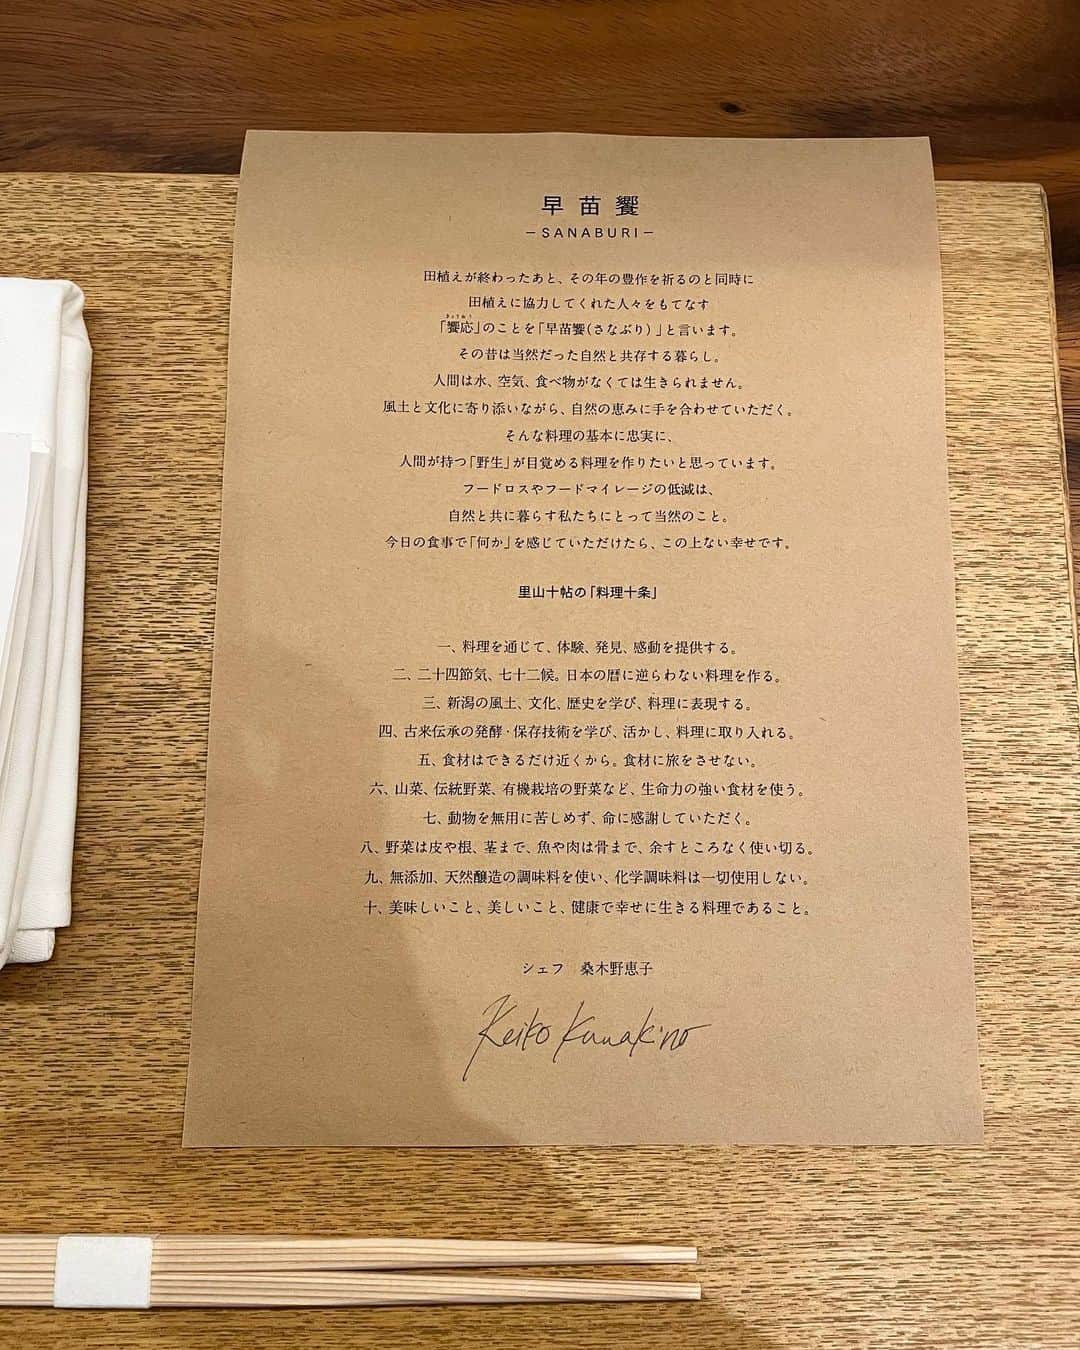 早苗饗
－SANABURI－
田植えが終わったあと、その年の豊作を祈るのと同時に
田植えに協力してくれた人々をもてなす
きょうおう
「饗応」のことを「早苗饗（さなぶり）」と言います。
その昔は当然だった自然と共存する暮らし。
人間は水、空気、食べ物がなくては生きられません。
風土と文化に寄り添いながら、自然の恵みに手を合わせていただく。
そんな料理の基本に忠実に、
人間が持つ「野生」が目覚める料理を作りたいと思っています。
フードロスやフードマイレージの低減は、
自然と共に暮らす私たちにとって当然のこと。
今日の食事で「何か」を感じていただけたら、この上ない幸せです。
里山十帖の「料理十条」
一、料理を通じて、体験、発見、感動を提供する。
二、二十四節気、七十二候。日本の暦に逆らわない料理を作る。
三、新潟の風土、文化、歴史を学び、料理に表現する。
四、古来伝承の発酵・保存技術を学び、活かし、料理に取り入れる。
五、食材はできるだけ近くから。食材に旅をさせない。
六、山菜、伝統野菜、有機栽培の野菜など、生命力の強い食材を使う。
七、動物を無用に苦しめず、命に感謝していただく。
八、野菜は皮や根、茎まで、魚や肉は骨まで、余すところなく使い切る。
九、無添加、天然醸造の調味料を使い、化学調味料は一切使用しない。
十、美味しいこと、美しいこと、健康で幸せに生きる料理であること。
シェフ　桑木野恵子
Keiko Kuwakino